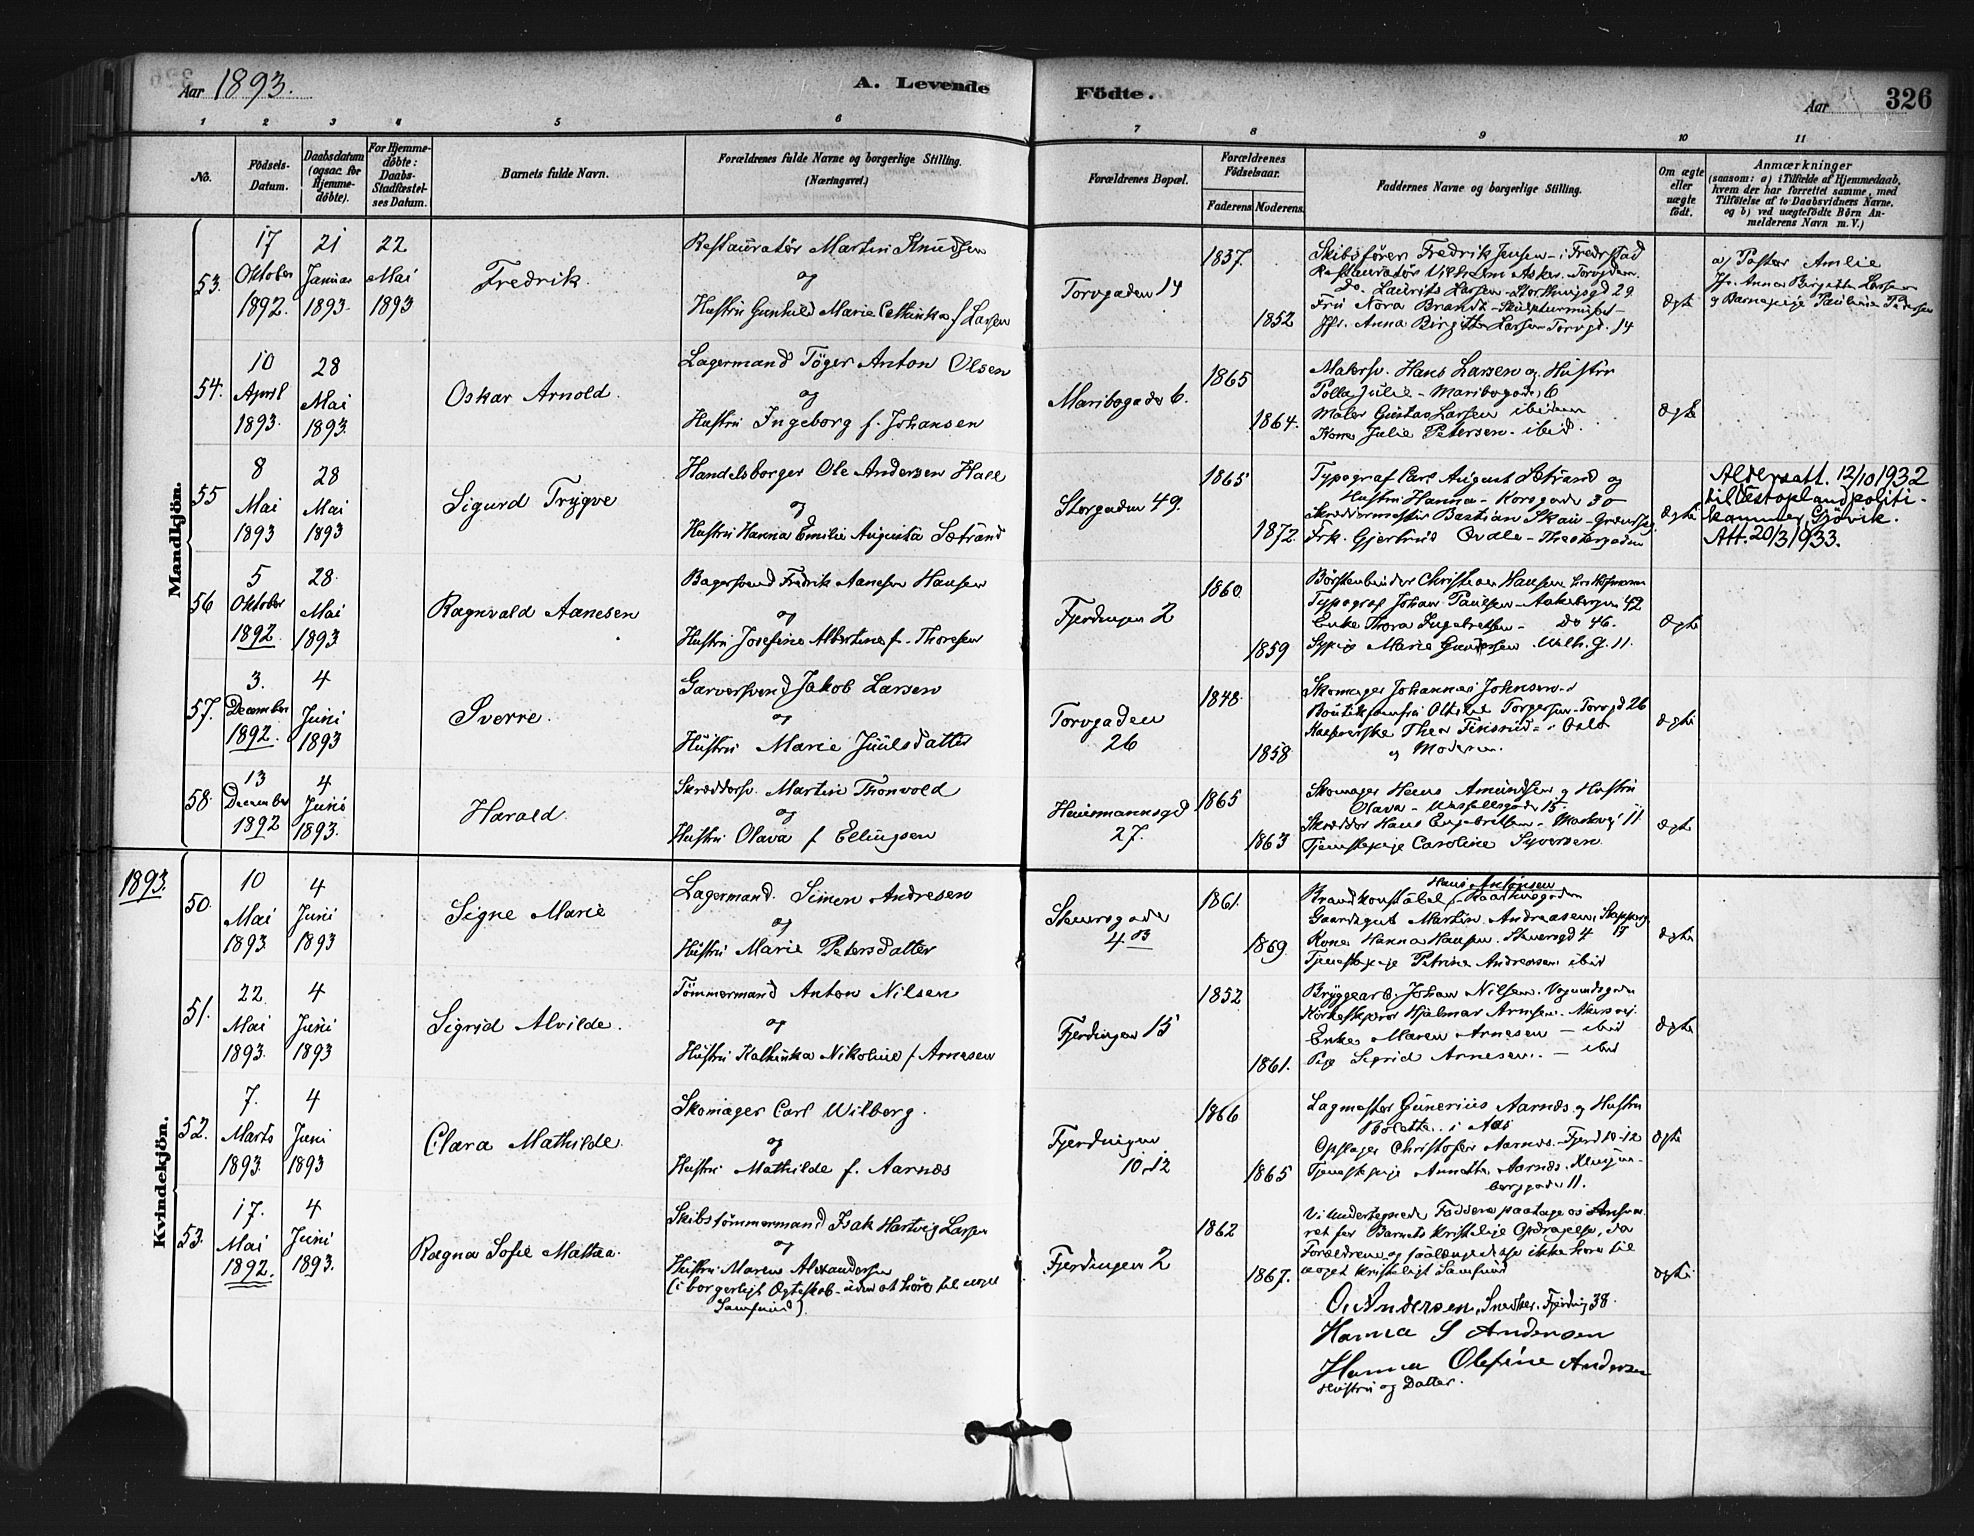 Aar 1893.
A. Levende Födte.
Aar
326
1 2 3 4 5 6 7 8 9 10 11
No.
Födsels-Datum.
Daabsdatum (ogsaa for Hjemme-döbte).
For Hjemme-döbte: Daabs-Stadfæstel-ses Datum.
Barnets fulde Navn.
Forældrenes fulde Navne og borgerlige Stilling. (Næringsvei.)
Forældrenes Bopæl.
Forældrenes Födselsaar.
Faderens.
Moderens.
Faddernes Navne og borgerlige Stilling.
Om ægte eller uægte födt.
Anmærkninger
(saasom: a) i Tilfælde af Hjemmedaab,
hvem der har forrettet samme, med
Tilföielse af to Daabsvidners Navne,
og b) ved uægtefödte Börn An-
melderens Navn m. V.)
Mandkjön.
53.
17 Oktober 1892.
21 Januar 1893.
22 Mai 1893
Fredrik.
Restauratør Martin Knudsen
og
Hustru Gunhild Marie Cathinka f Larsen
Torvgaden 14
1837.
1852
Skibsfører Fredrik Jensen - i Fredrstad
Restauratør Vilhelm Asker. Torvgaden.
do. Laurits Larsen - Storthingsgd 29
Fru Nora Brandt - Skulpturmuseet -
Jfr. Anna Birgitte Larsen Torvgd. 14
Ægte
a) Pastor Amlie
Jfr. Anna Birgitte Larsen
og Barnepige Pauline Pedersen
54.
10 April 1893.
28 Mai 1893.
Oskar Arnold.
Lagermand Töger Anton Olsen
og
Hustru Ingeborg f. Johansen
Maribogaden 6.
1865
1864.
Malersv. Hans Larsen og Hustru
Polla Julie - Maribogaden 6
Maler Gustav Larsen ibidem
Kone Julie Petersen - ibid.
Ægte
55
8 Mai 1893
28 Mai 1893
Sigurd Trygve
Handelsborger Ole Andersen Hall
og
Hustru Hanna Emilie Augusta Sætrand
Storgaden 49.
1865
1872.
Typograf Carl August Sætrand og
Hustru Hanna - Korsgaden 30
Skræddermester Bastian Skau -
Frk. Gjertrud - Theatergaden
Ægte
Aldersatt. 12/10 1932
til Vestoplandpoliti-
kammer, Gjövik.
Att. 20/3 1933.
56
5 Oktober 1892.
28. Mai 1893
Ragnvald Aanesen
Bagersvend Fredrik Aanesen Hansen
og
Hustru Josefine Albertine f. Thoresen
Fjerdingen 2
1860
1859
Børstenbinder Christian Hansen
Typograf Johan Paulsen - Aakebergvn 42
Enke Thora Ingebretsen - Do 46.
Sypige Marie Gundersen Wilh. G. 11.
Ægte
57.
3. December 1892.
4 Juni 1893
Sverre.
Garversvend Jakob Larsen
og
Hustru Marie Juulsdatter
Torvgaden 26
1848.
1858
Skomager Johannes Johnsen
Torgersen - Torvgd 26
Thea - Oslo
og Moderen.
Ægte
58.
13 December 1892
4 Juni 1893.
Harald.
Skræddersv. Martin Thonvold
og
Hustru Olava f Ellingsen
Heimannsgd 27.
1865
1863
Skomager Hans Amundsen og Hustru
Olava - Wessellsgade 15.
Skrædder Hans Engebretsen - Maskvei 11
Tjenestepige Caroline Syversen
Ægte
Kvindekjön.
1893.
50.
10 Mai 1893
4 Juni 1893
Signe Marie
Lagermand. Simen Andresen
og
Hustru Marie Petersdatter
Steuersgaden 4 03
1861.
1869.
Hans Antonsen
Brandkonstabel
Gaardsgut Martin Andreasen. Skipperg. 17
Kone Hanna Hansen. Steuersgd 4
Tjenestepige Petrine Andreasen ibid
Ægte
51.
22 Mai 1893.
4 Juni 1893
Sigrid Alvilde.
Tömmermand Anton Nilsen
og
Hustru Kathinka Nikoline f Arnesen
Fjerdingen 15
1852
1861.
Bryggearb. Johan Nilsen.
Hjalmar Arnesen.
Enke Maren Arnesen - ibid
Pige Sigrid Arnesen. - ibid
Ægte
52.
7. Marts 1893.
4 Juni 1893
Clara Mathilde.
Skomager Carl Wilberg.
og
Hustru Mathilde f. Aarnæs
Fjerdingen 10-12
1866
1865
Lagmester Gunerius Aarnæs og Hustru
Bolette. i Aas
Opslager Christofer Aarnæs. Fjerd 10-12
Tjenestepige Annette Aarnæs. Klingen-
berggaden 11.
Ægte
53.
17. Mai 1892.
4 Juni 1893.
Ragna Sofie Mattea.
Skibstömmermand Isak Hartvig Larsen
og
Hustru Maren Alexandersen
(i borgerligt Ægteskab - uden at høre til noget
Samfund)
Fjerdingen 2
1862
1867.
Vi undertegnede Faddere paatage os Ansva-
ret for Barnets kristelige Opdragelse, da
Forældrene og saalænge disse ikke høre til
noget kristeligt Samfund
O. Andersen, Snedker. Fjerding 38.
Hanna S Andersen
Hanna Olefine Andersen
Hustru og Datter.
Ægte